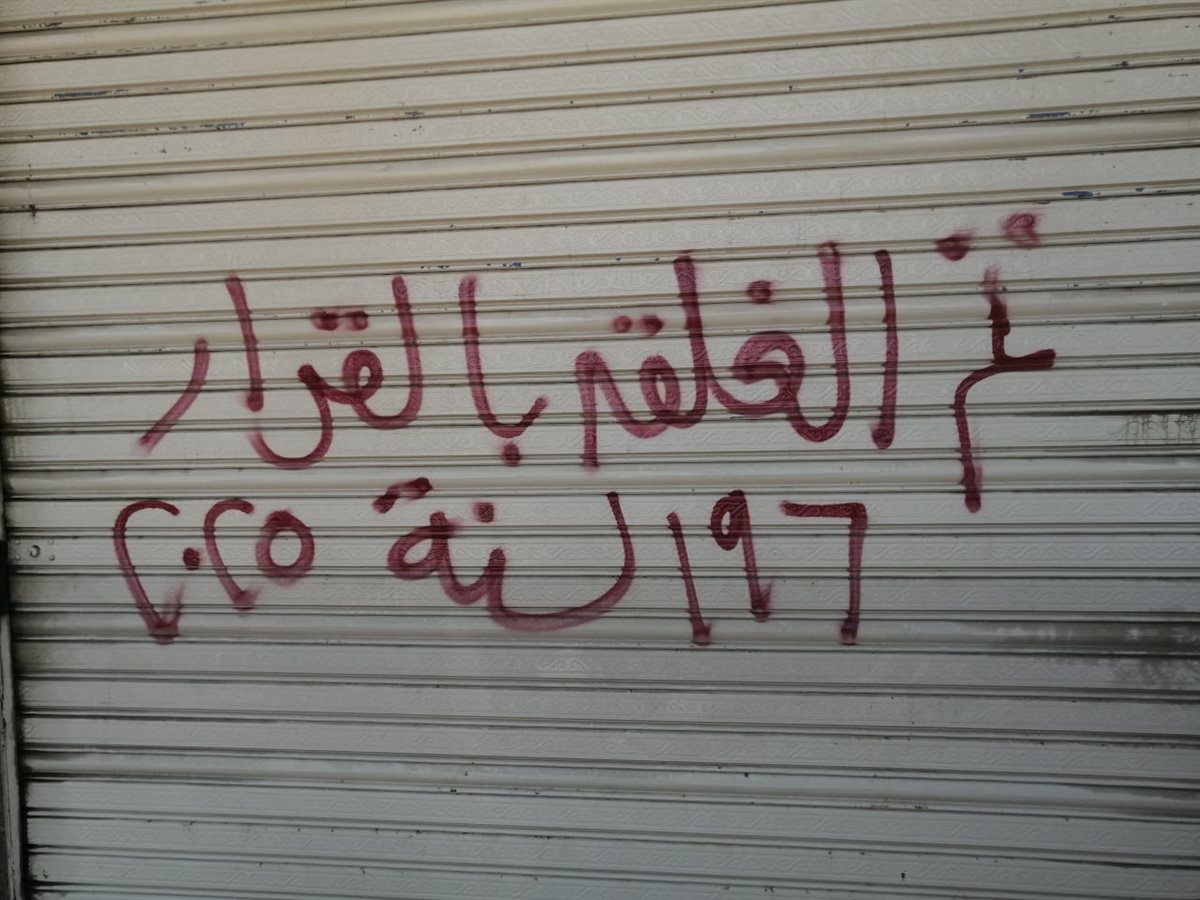 تم الغلق بالقرار
١٩٦ لسنة ٢٠٢٥